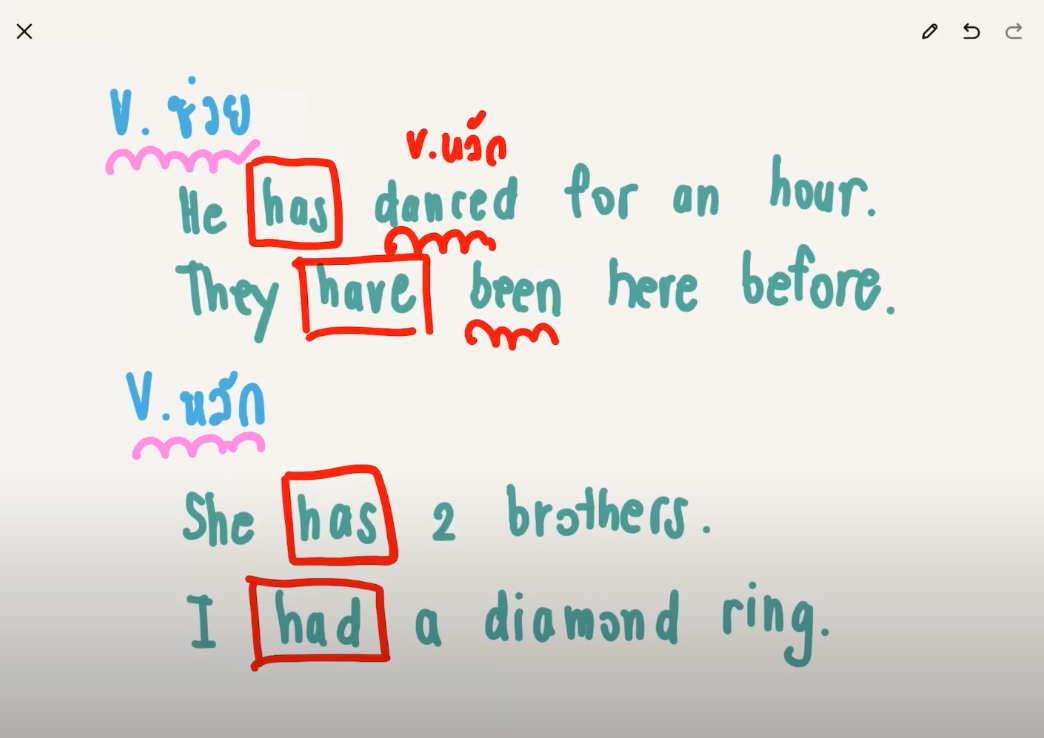 V. ช่วย
V.หลัก
He has danced for an hour.
They have been here before.
V. หลัก
She has 2 brothers.
I had a diamond ring.